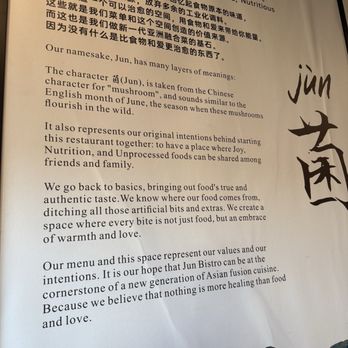 Nutritious
忆起食物原本的味道,
放弃多余的工业化调料。
个可以治愈的空间,用食物和爱来带给你能量。
这些就是我们菜单和这个空间创造的价值来源。
而这也是我们做新一代亚洲融合菜的基石。
因为没有什么是比食物和爱更治愈的东西了。
Our namesake, Jun, has many layers of meanings:
The character 菌(Jun), is taken from the Chinese
character for "mushroom", and sounds similar to the
English month of June, the season when these mushrooms
flourish in the wild.
It also represents our original intentions behind starting
this restaurant together: to have a place where Joy,
Nutrition, and Unprocessed foods can be shared among
friends and family.
We go back to basics, bringing out food's true and
authentic taste.We know where our food comes from,
ditching all those artificial bits and extras. We create a
space where every bite is not just food, but an embrace
of warmth and love.
Our menu and this space represent our values and our
intentions. It is our hope that Jun Bistro can be at the
cornerstone of a new generation of Asian fusion cuisine.
Because we believe that nothing is more healing than food
and love.
jùn
菌